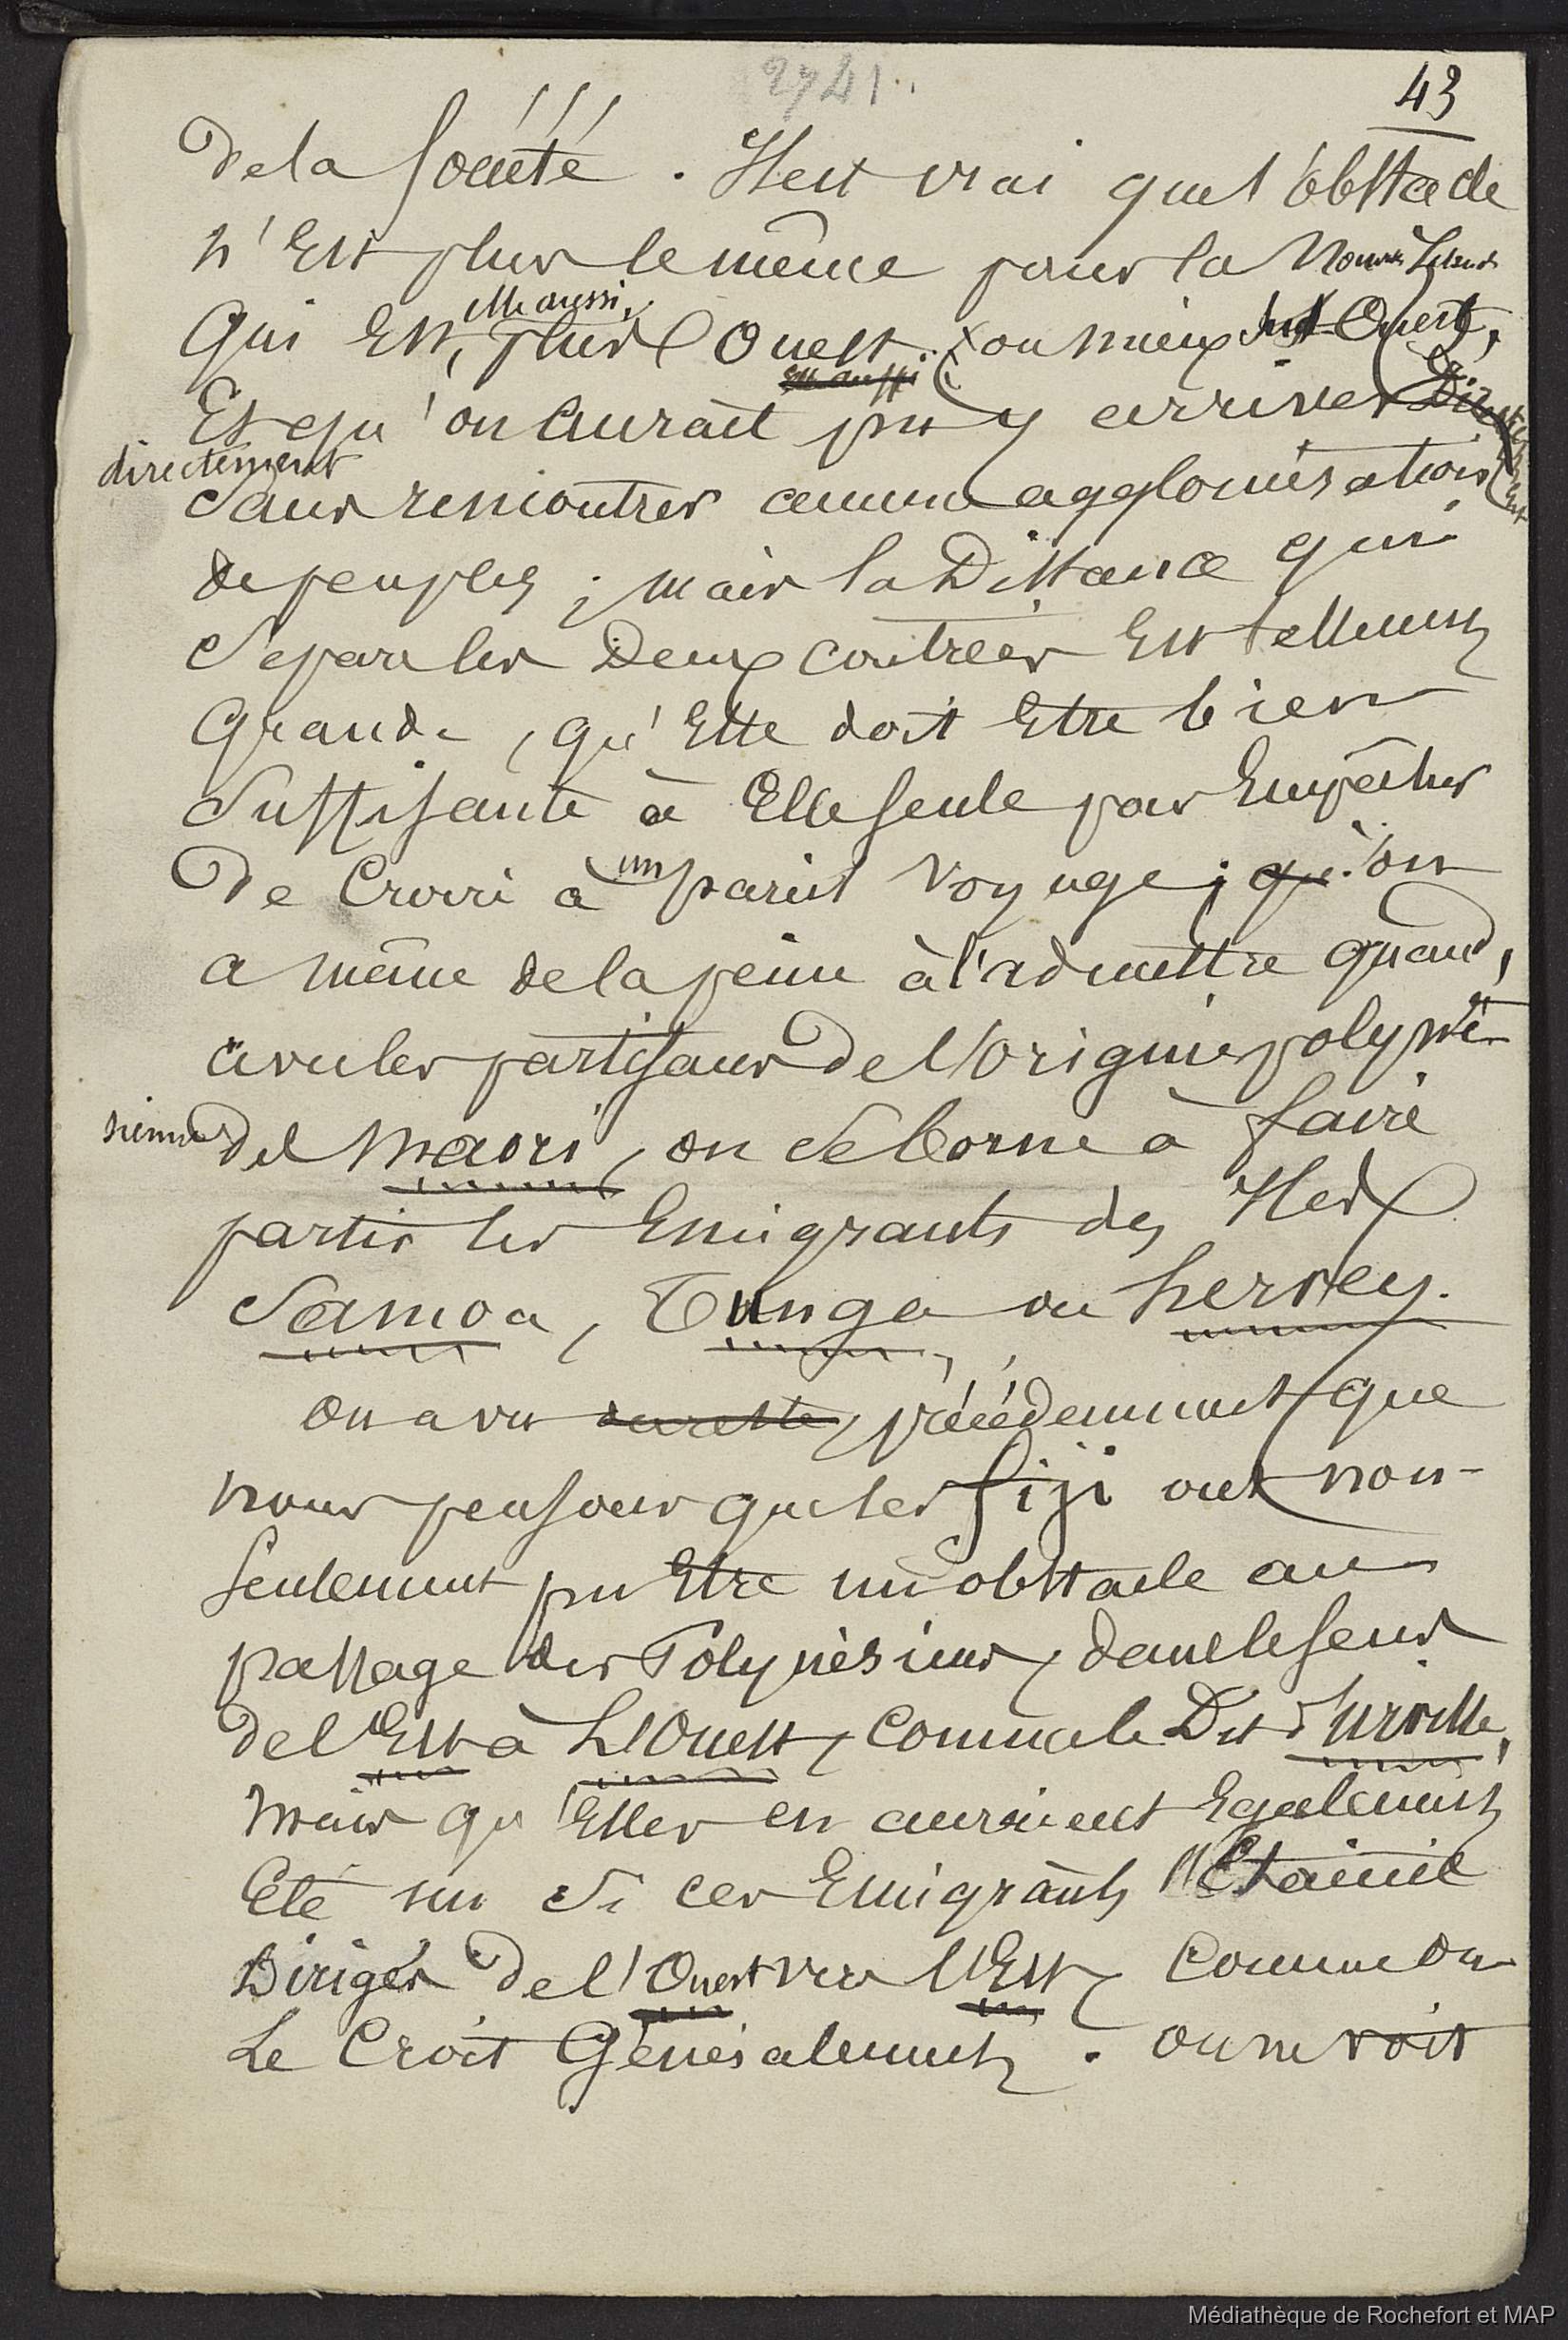 2741
43
de la Société. Il est vrai que l'obstacle
n'est plus le même pour la Nouvelle Zélande
qui est, elle aussi, plus l'ouest (ou mieux Sud-Ouest,
Est aussi
et qu'on aurait pu y arriver directement
directement
sans rencontrer aucune agglomération
de peuples ; mais la distance qui
sépare les deux contrées est tellement
grande, qu'elle doit être bien
suffisante à elle seule pour empêcher
de croire à un pareil voyage ; qu'on
a même de la peine à l'admettre quand,
avec les partisans de l'origine polyné-
sienne des Maori, on se borne à faire
partir les émigrants des Iles
Samoa, Tunga ou hervey.
on a vu du reste, précédemment, que
nous pensons que les fiji ont non-
seulement pu être un obstacle au
passage des Polynésiens, dans le sens
de l'Est à L'Ouest, comme le dit d'Urville,
mais qu'elles en auraient également
été un si ces émigrants s'étaient
dirigés de l'Ouest vers l'Est, comme on
le croit généralement. on ne voit
Médiathèque de Rochefort et MAP